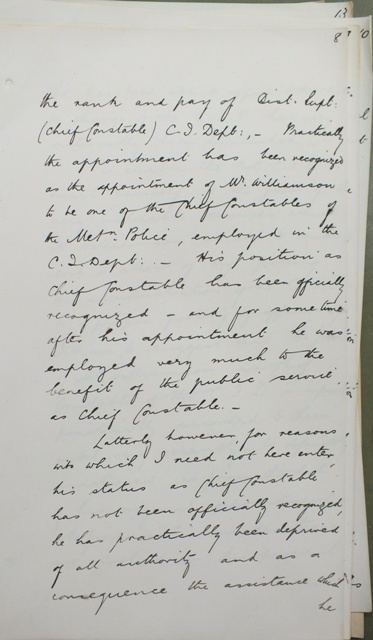 13
8
the rank and pay of Dist: Supt:
(Chief Constable) C.I. Dept:, – Practically
the appointment has been recognized
as the appointment of Mr. Williamson
to be one of the Chief Constables of
the Metn. Police, employed in the
C.I. Dept: – His position as
Chief Constable has been officially
recognized – and for some time
after his appointment he was
employed very much to the
benefit of the public service
as Chief Constable. –
Latterly however, for reasons
into which I need not here enter,
his status as Chief Constable
has not been officially recognized,
he has practically been deprived
of all authority and as a
consequence the assistance which
he